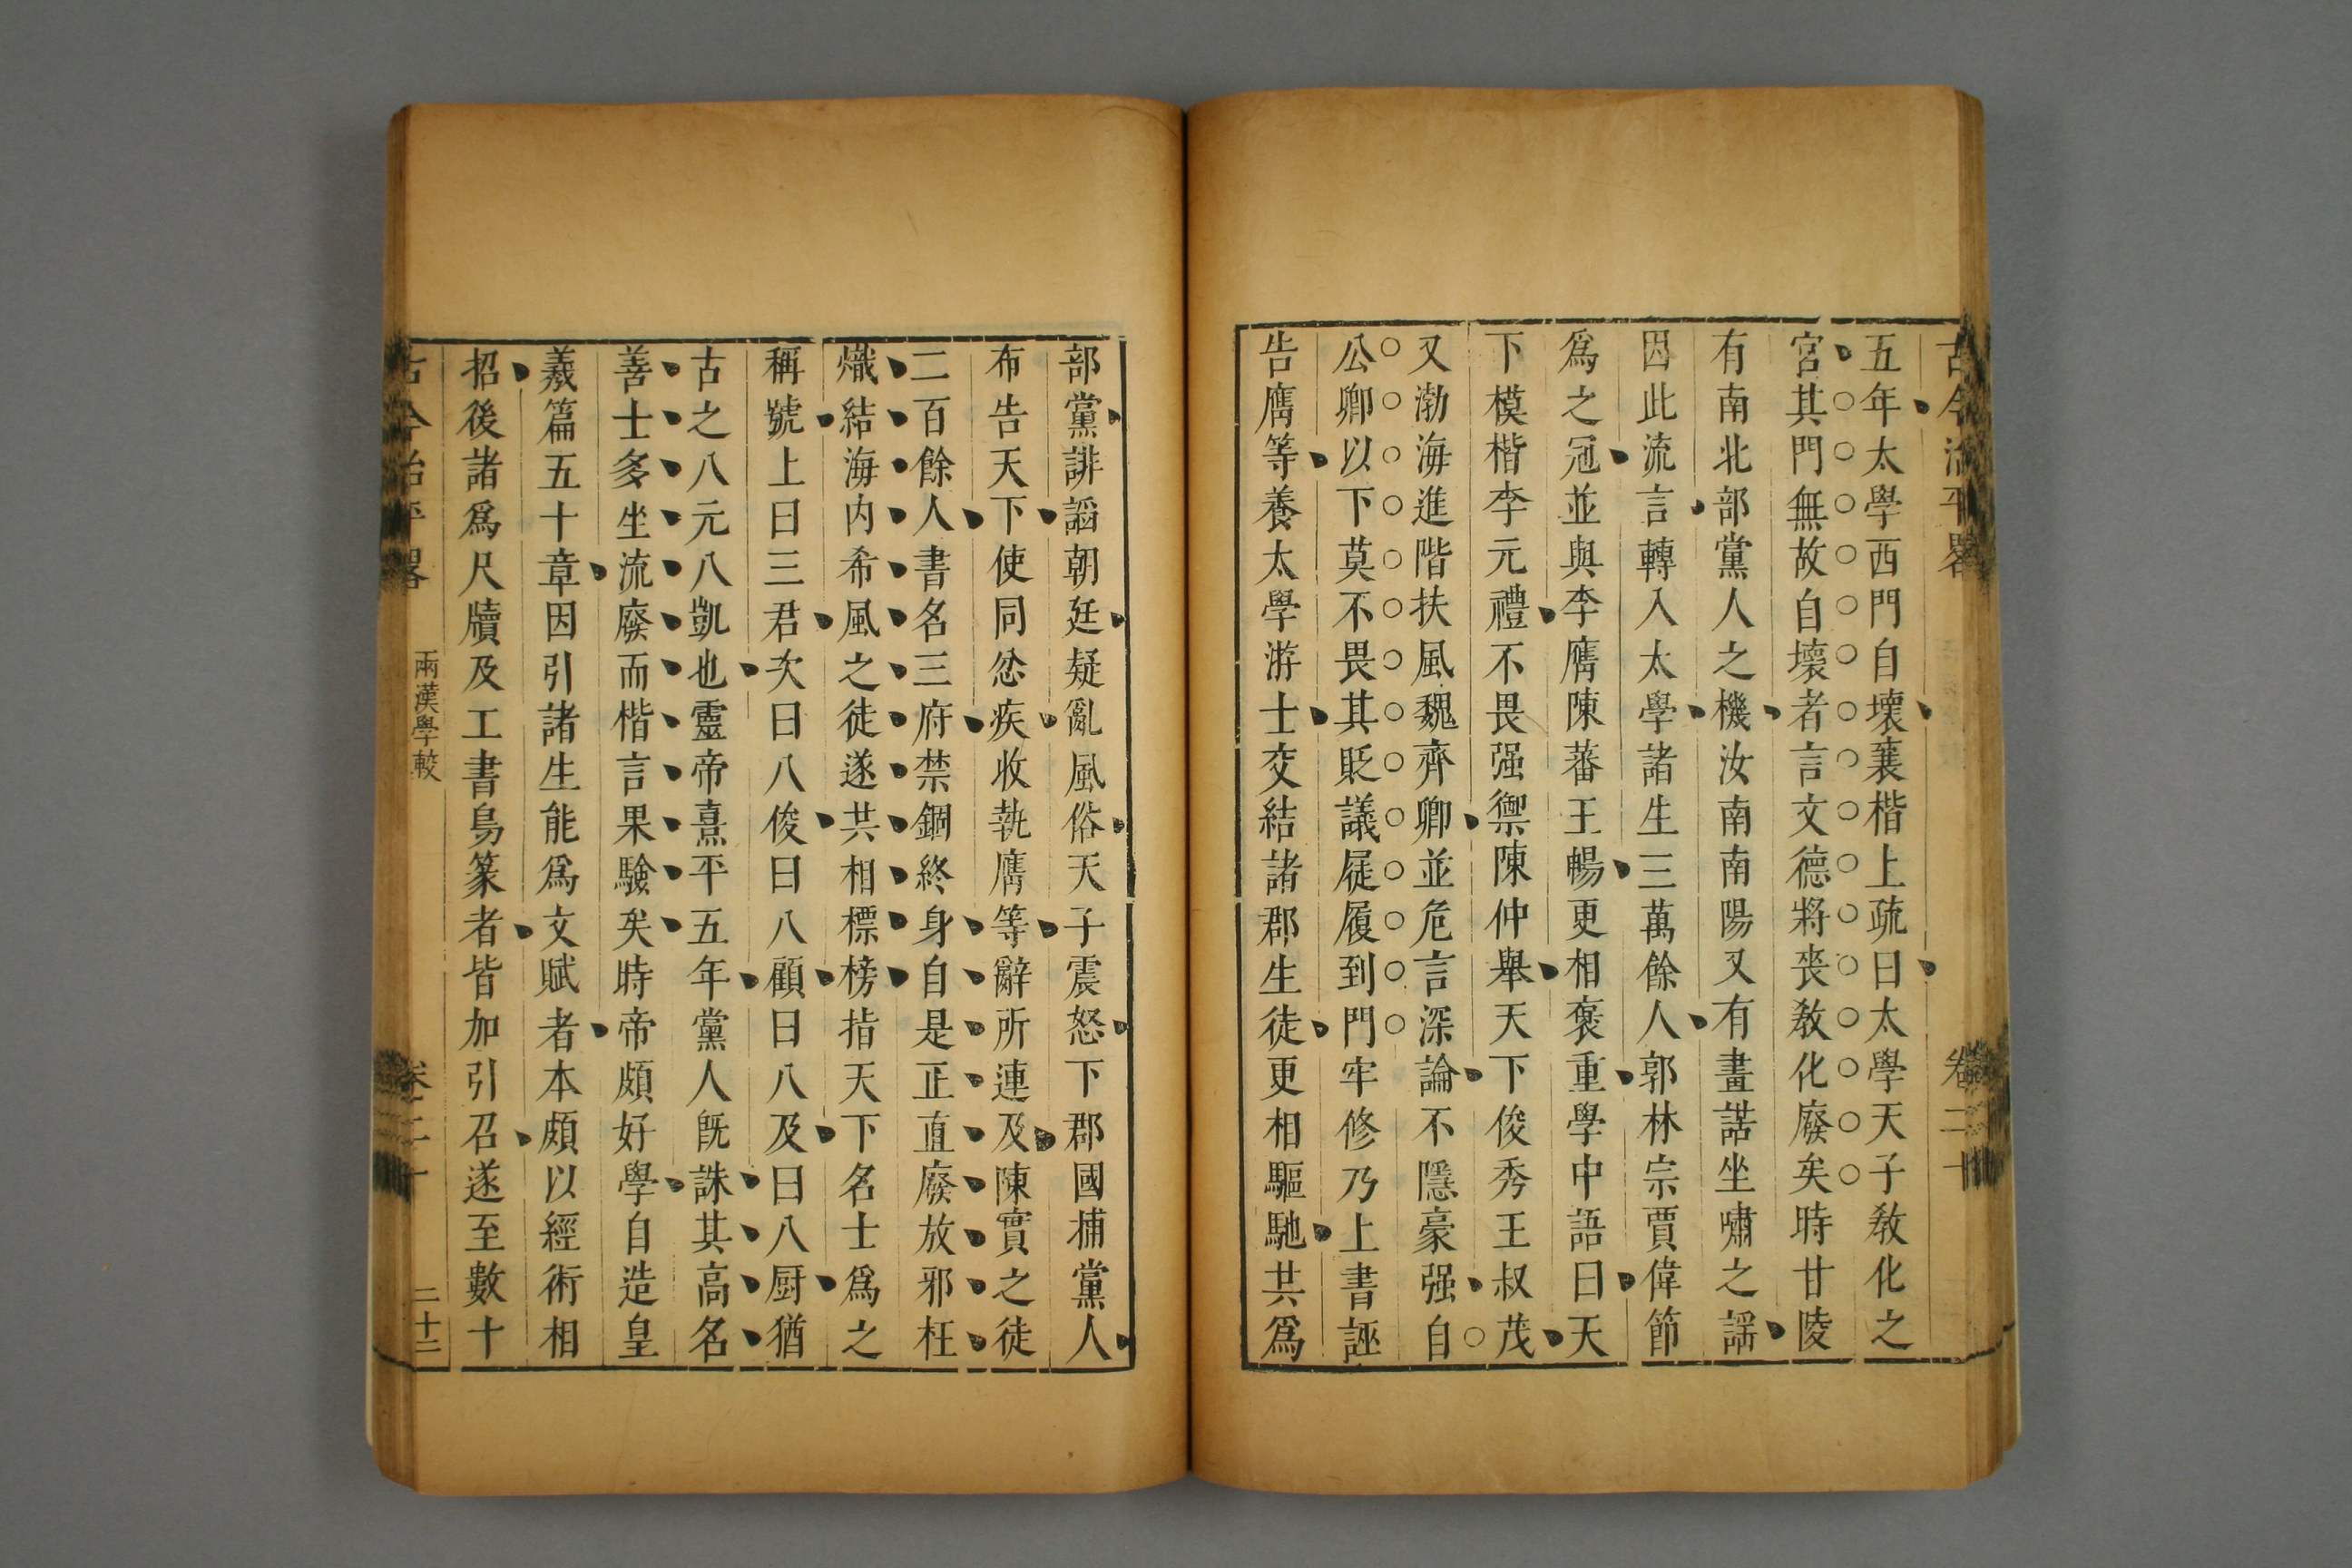 古今治平畧
卷二十
五年太學西門自壞襄楷上疏曰太學天子敎化之
宮其門無故自壞者言文德將喪敎化廢矣時甘陵
有南北部黨人之機汝南南陽又有畫諾坐嘯之謡
因此流言轉入太學諸生三萬餘人郭林宗賈偉節
爲之冠並與李膺陳蕃王暢更相褒重學中語曰天
下模楷李元禮不畏强禦陳仲舉天下俊秀王叔茂
又渤海進階扶風魏齊卿並危言深論不隱豪强自
公卿以下莫不畏其貶議屣履到門牢修乃上書誣
告膺等養太學游士交結諸郡生徒更相驅馳共爲
部黨誹謟朝廷疑亂風俗天子震怒下郡國捕黨人
布告天下使同忿疾收執膺等辭所連及陳實之徒
二百餘人書名三府禁錮終身自是正直廢放邪枉
熾結海内希風之徒遂共相標榜指天下名士爲之
稱號上曰三君次曰八俊曰八顧曰八及曰八厨猶
古之八元八凱也靈帝熹平五年黨人旣誅其高名
善士多坐流廢而楷言果驗矣時帝頗好學自造皇
羲篇五十章因引諸生能爲文賦者本頗以經術相
招後諸爲尺牘及工書鳥篆者皆加引召遂至數十
古今治平畧
兩漢學較
卷二十
二十三